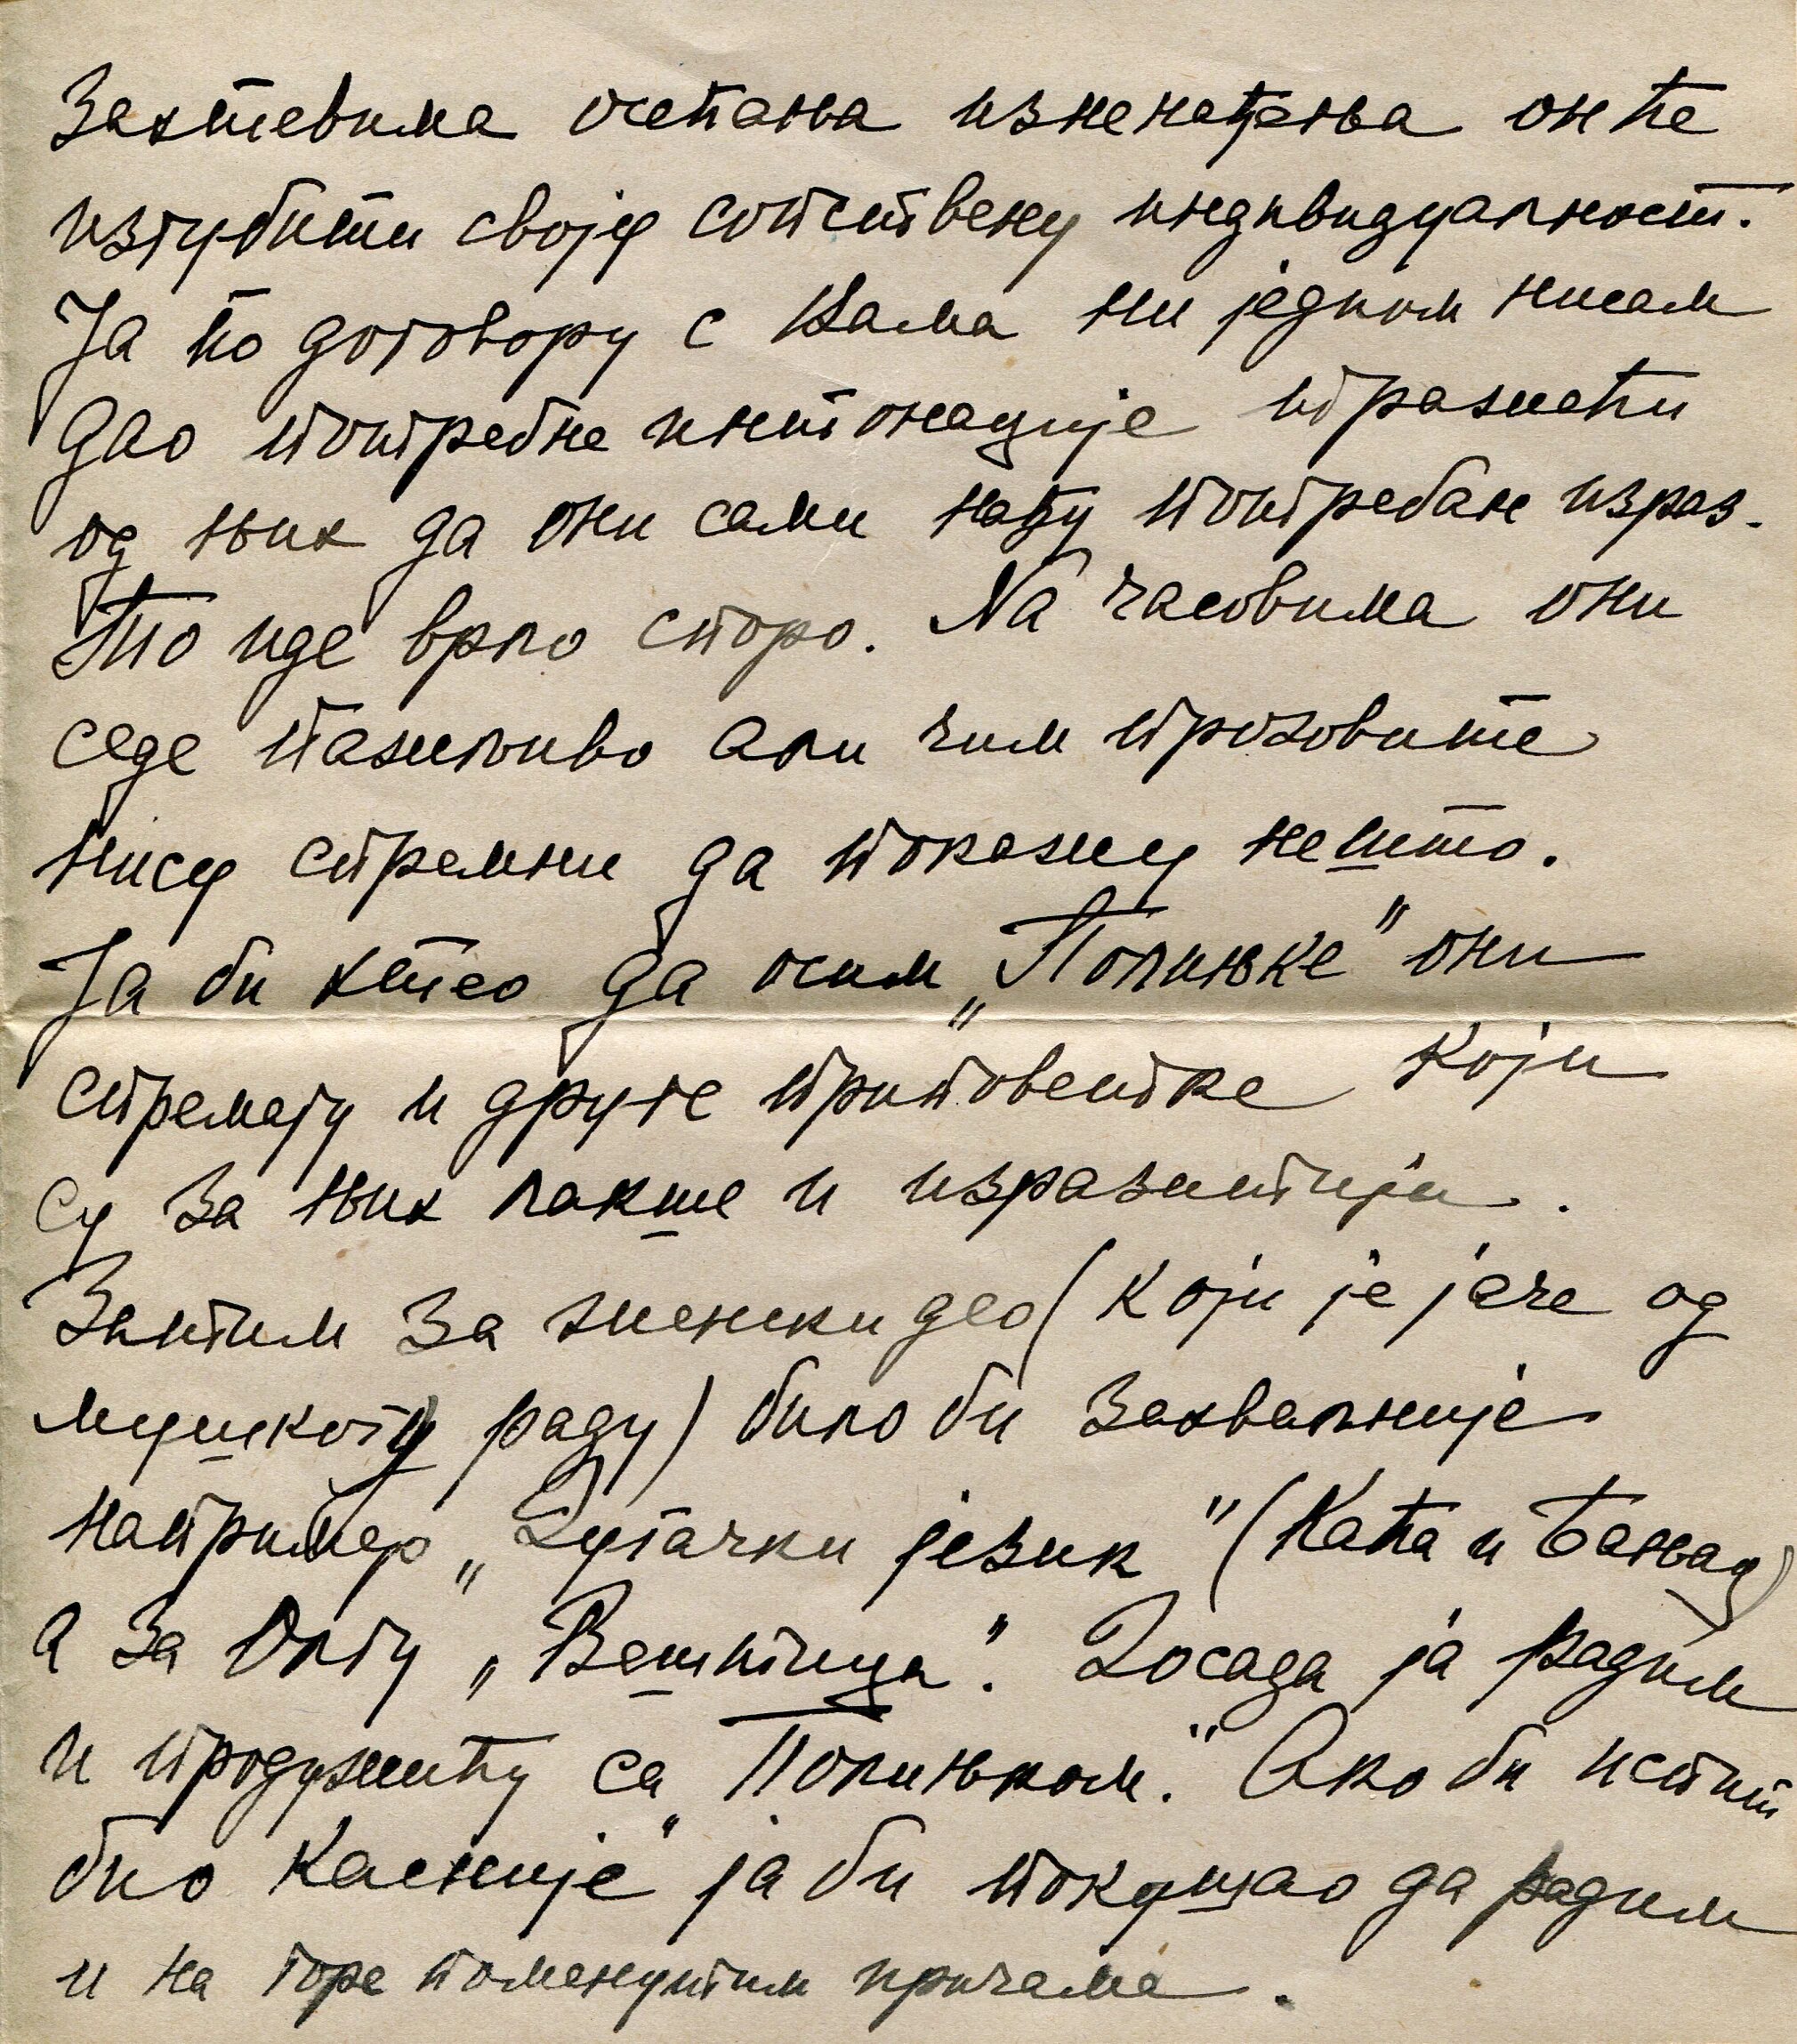 захтевима осећања изненађења он ће
изгубити своју сопствену индивидуалност.
Ја по договору с Вама ни једном нисам
дао потребне интонације тражећи
од њих да они сами нађу потребан израз.
То иде врло споро. На часовима они
седе пажљиво али чим прозовите
нису спремни да покажу нешто.
Ја би хтео да осим „Пољњке" они
спремају и друге приповетке који
су за њих лакше и изразитији.
Затим за женски део (који је јаче од
мушкогу раду) било би захвалније
например „Дугачки језик" (Каћа и Бањац)
а за Олгу „Вештица". Досада ја радим
и продужићу са „Полињком." Ако би испит
био касније ја би покушао да радим
и на горе поменутим причама.